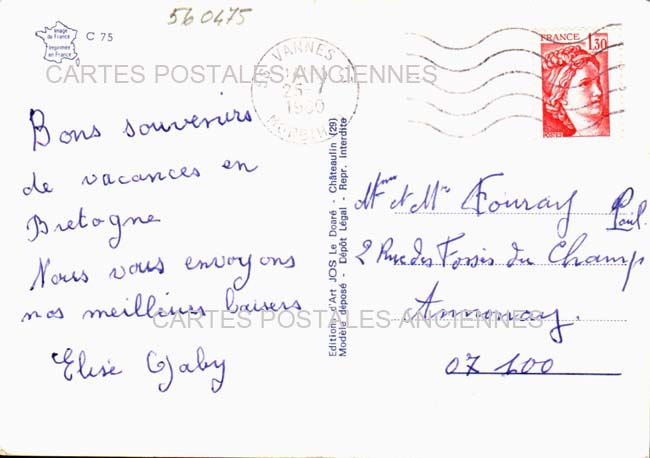 560475
Image
de France
Imprimée
en France
C 75
VANNES
25-7
1980
MORBIHAN
FRANCE
1,30
CARTES POSTALES ANCIENNES
Bons souvenirs
de vacances en
Bretagne
Nous vous envoyons
nos meilleurs baisers
Elise Gaby
Editions d'Art JOS Le Doaré - Châteaulin (29)
Modèle déposé - Dépôt Légal - Repr. Interdite
Mme et Mr Fouray
Paul
2 Rue des Fossés du Champ
Annonay.
07 100
CARTES POSTALES ANCIENNES